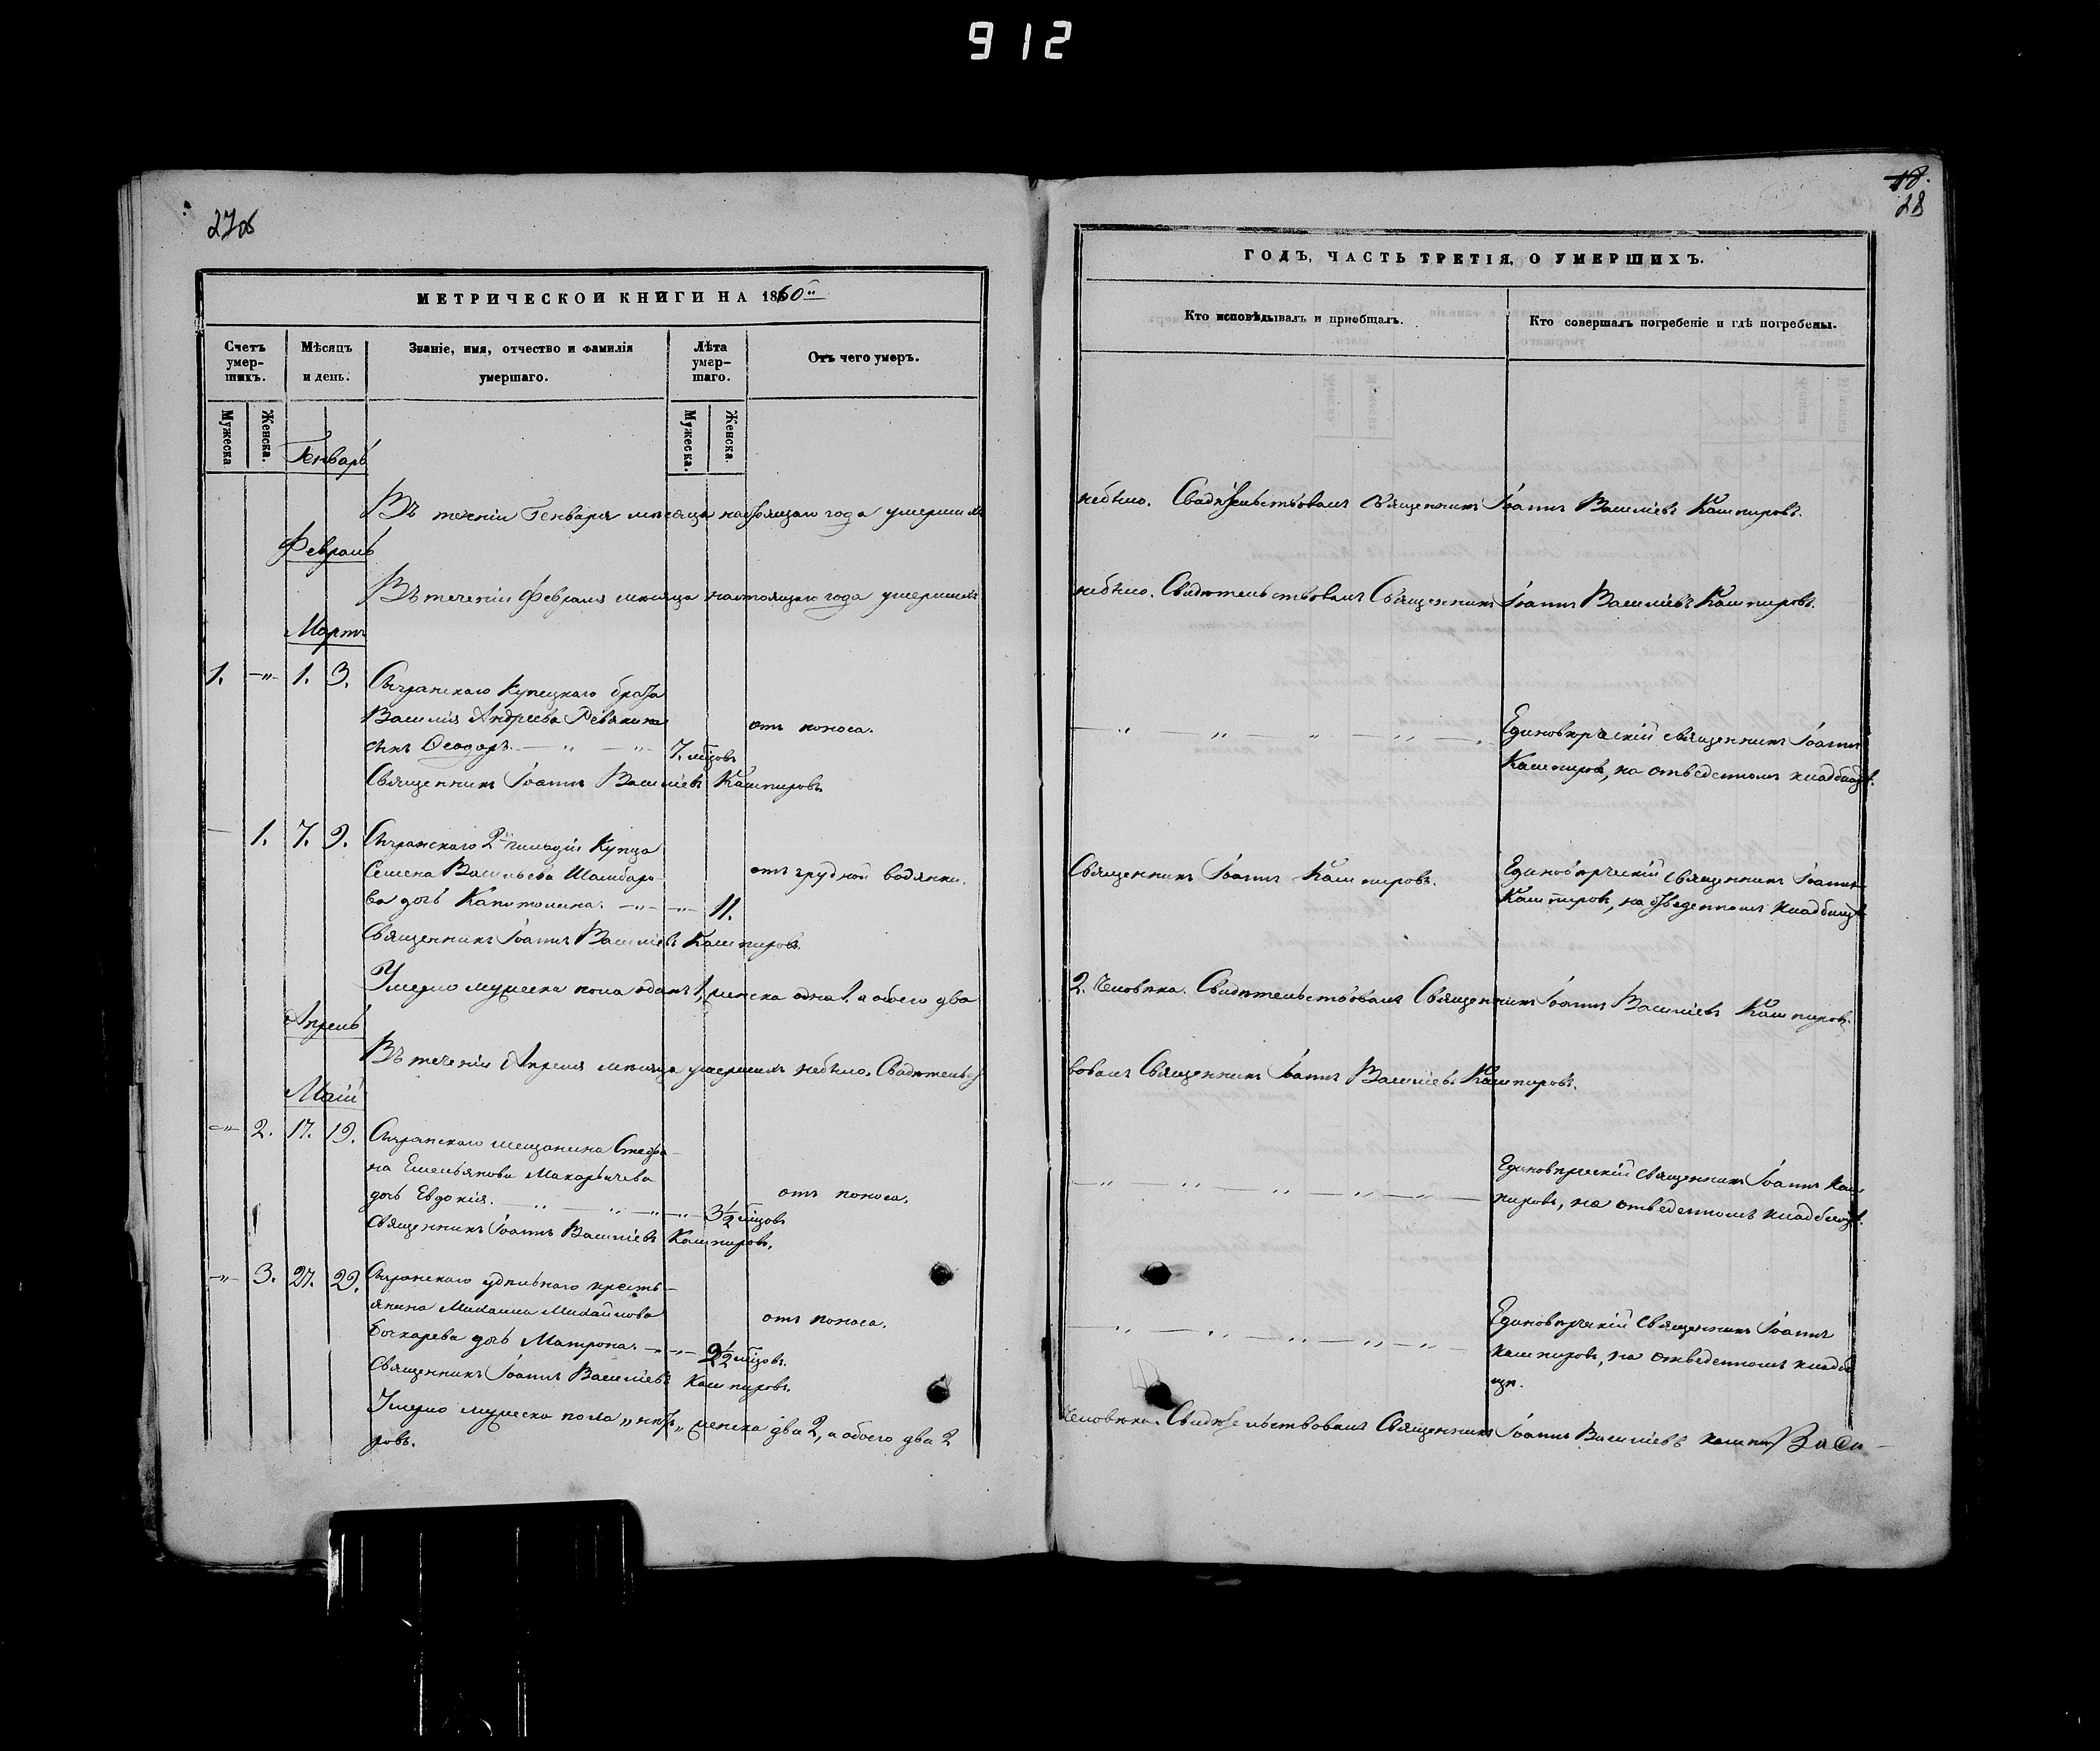 912
27об
18.
28
МЕТРИЧЕСКОЙ КНИГИ НА 1860
ГОДЪ, ЧАСТЬ ТРЕТІЯ, О УМЕРШИХЪ.
Счетъ умер-
шихъ.
Мѣсяцъ
и день.
Званіе, имя, отчество и фамилія
умершаго.
Лѣта
умер-
шаго.
Отъ чего умеръ.
Кто исповѣдывалъ и пріобщалъ.
Кто совершалъ погребеніе и гдѣ погребены.
Мужеска
Женска.
Мужеска.
Женска.
Генварь
Въ теченіи Генваря мѣсяца настоящаго года умершихъ
небыло. Свидѣтельствовалъ Священникъ Іоаннъ Василіевъ Кашпировъ.
Февраль
Въ теченіи Февраля мѣсяца настоящаго года умершихъ
небыло. Свидѣтельствовалъ Священникъ Іоаннъ Василіевъ Кашпировъ.
Мартъ
1. —"— 1. 3. Сызранскаго Купецкаго брата
Василія Андреева Ревякина
сынъ Ѳеодоръ. — " — " — 7. мѣцовъ
отъ поноса.
Единовѣрческій священникъ Іоаннъ
Кашпировъ, на отведенномъ кладбищѣ.
Священникъ Іоаннъ Василіевъ Кашпировъ
— 1. 7. 9. Сызранскаго 2й гильдіи Купца
Семена Васильева Шамбаро-
ва дочь Капитолина. —"— —"— 11.
отъ грудной водянки.
Священникъ Іоаннъ Кашпировъ.
Единовѣрческій священникъ Іоаннъ
Кашпировъ, на отведенномъ кладбищѣ
Священникъ Іоаннъ Василіевъ Кашпировъ.
Умерло мужеска пола одинъ 1, женска одна 1. а обоего два
2. Человѣка. Свидѣтельствовалъ Священникъ Іоаннъ Василіевъ Кашпировъ.
Апрель
Въ теченіи Апреля мѣсяца умершихъ небыло. Свидѣтельст
вовалъ Священникъ Іоаннъ Василіевъ Кашпировъ.
Маій
—"— 2. 17. 19. Сызранскаго мещанина Стефа-
на Емельянова Макарычева
дочь Евдокія. — " — " — " — 3½ мѣцовъ
отъ поноса.
Единовѣрческій священникъ Іоаннъ Каш-
пировъ, на отведенномъ кладбищѣ.
Священникъ Іоаннъ Василіевъ Кашпировъ.
—"— 3. 27. 29. Сызранскаго удѣльнаго кресть-
янина Михаила Михайлова
Бочкарева дочь Матрона. —"— —"— 2½ мѣцовъ.
отъ поноса.
Единовѣрческій Священникъ Іоаннъ
Кашпировъ, на отведенномъ кладби
щѣ.
Священникъ Іоаннъ Василіевъ Кашпировъ.
Умерло мужеска пола "нѣтъ" женска два 2, а обоего два 2
Человѣка. Свидѣтельствовалъ Священникъ Іоаннъ Василіевъ Кашпи
ровъ.